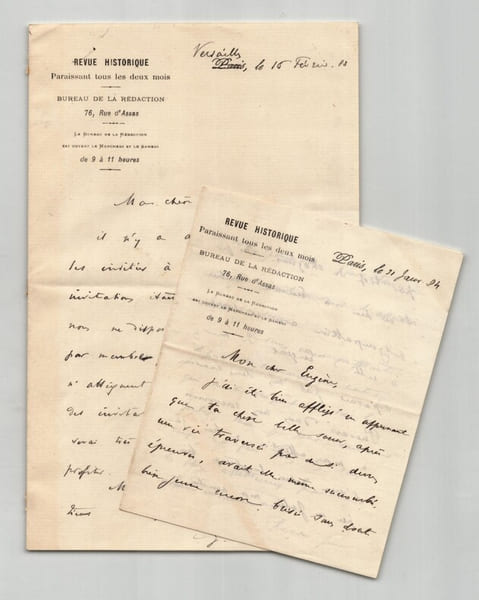 REVUE HISTORIQUE
Paraissant tous les deux mois
BUREAU DE LA RÉDACTION
76, Rue d'Assas
LE BUREAU DE LA RÉDACTION
EST OUVERT LE MERCREDI ET LE SAMEDI
de 9 à 11 heures
Versailles
Paris, le 16 Février
Mon chère
il n'y a
les invités à
invitations étan
nous ne dispo
par membre
n'atteignent
des invitat
serai très
profiter.
M
REVUE HISTORIQUE
Paraissant tous les deux mois
BUREAU DE LA RÉDACTION
76, Rue d'Assas
LE BUREAU DE LA RÉDACTION
EST OUVERT LE MERCREDI ET LE SAMEDI
de 9 à 11 heures
Paris, le 21 Janv 94
Mon cher Eugène,
j'ai été bien affligé en apprenant
que ta chère belle soeur, après
une vie traversée par de si dures
épreuves, avait elle même succombé,
bien jeune encore, brisée sans doute